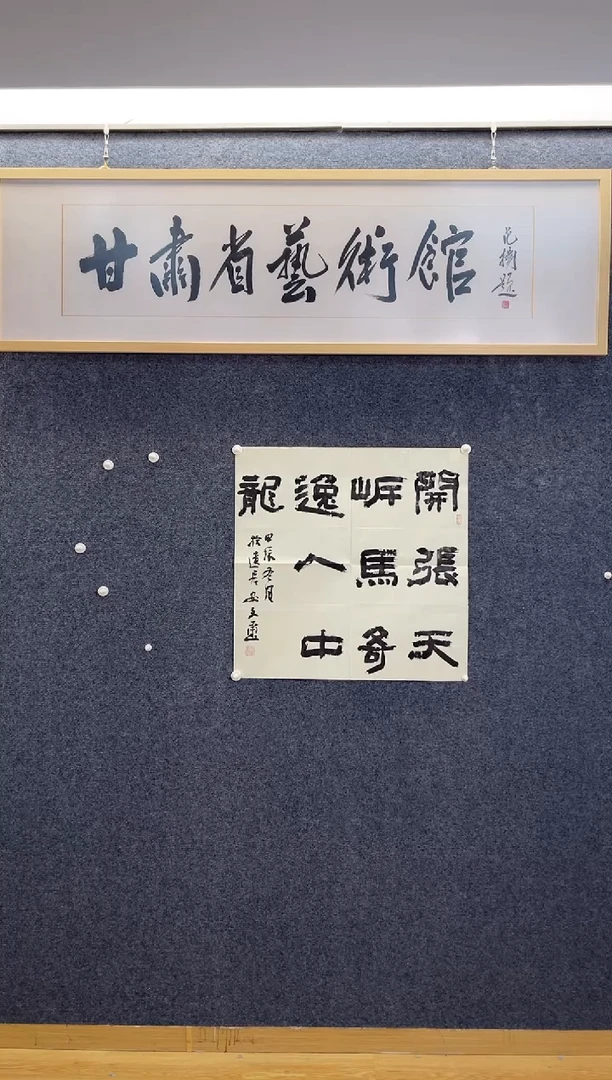 甘肅省藝術館
題
開張天
岸馬奇
逸人中
龍
甲辰冬月